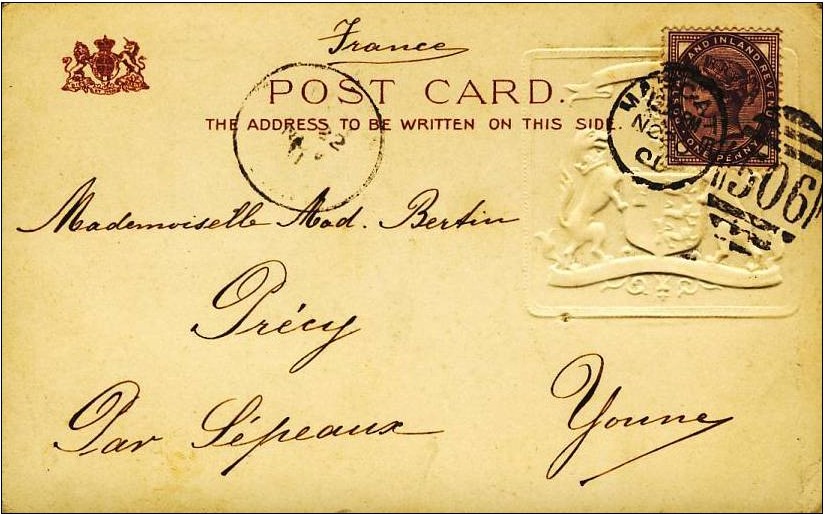 France
POST CARD.
THE ADDRESS TO BE WRITTEN ON THIS SIDE.
POSTAGE AND INLAND REVENUE
ONE PENNY
MARGATE
NO
506
Mademoiselle Mad. Bertin
Précy
Par Sépeaux Yonne